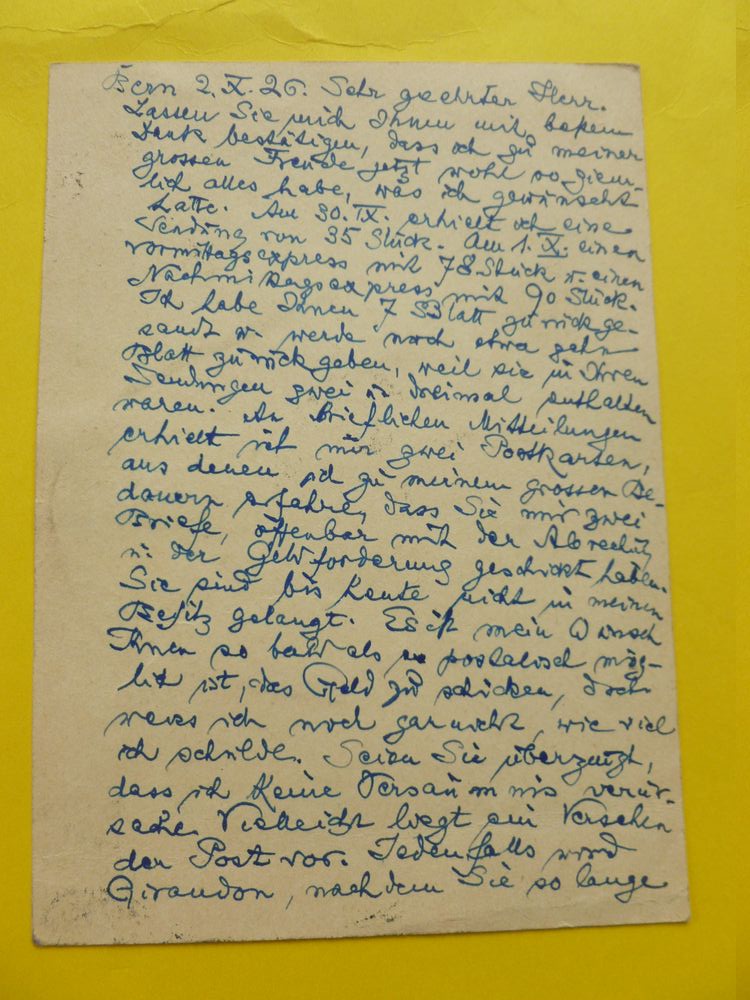 Bern 2. X. 26. Sehr geehrter Herr.
Lassen Sie mich Ihnen mit bestem
Dank bestätigen, dass ich zu meiner
grossen Freude jetzt wohl so ziem-
lich alles habe, was ich gewünscht
hatte. Am 30. IX. erhielt ich eine
Sendung von 35 Stück. Am 1. X. einen
Vormittagsexpress mit 78 Stück u. einen
Nachmittagsexpress mit 90 Stück.
Ich habe Ihnen 7 Blatt zurückge-
sandt u. werde noch etwa zehn
Blatt zurückgeben, weil sie in Ihren
Sendungen zwei u. dreimal enthalten
waren. An brieflichen Mitteilungen
erhielt ich nur zwei Postkarten,
aus denen ich zu meinem grossen Be-
dauern erfahre, dass Sie mir zwei
Briefe, offenbar mit der Abrechnung
u. der Geldforderung geschickt haben.
Sie sind bis heute nicht in meinen
Besitz gelangt. Es ist mein Wunsch
Ihnen so bald als postalisch mög-
lich ist, das Geld zu schicken, doch
weiss ich noch gar nicht, wie viel
ich schulde. Seien Sie überzeugt,
dass ich keine Versäumnis verur-
sache. Vielleicht liegt ein Versehen
der Post vor. Jedenfalls wird
Giraudon, nachdem Sie so lange